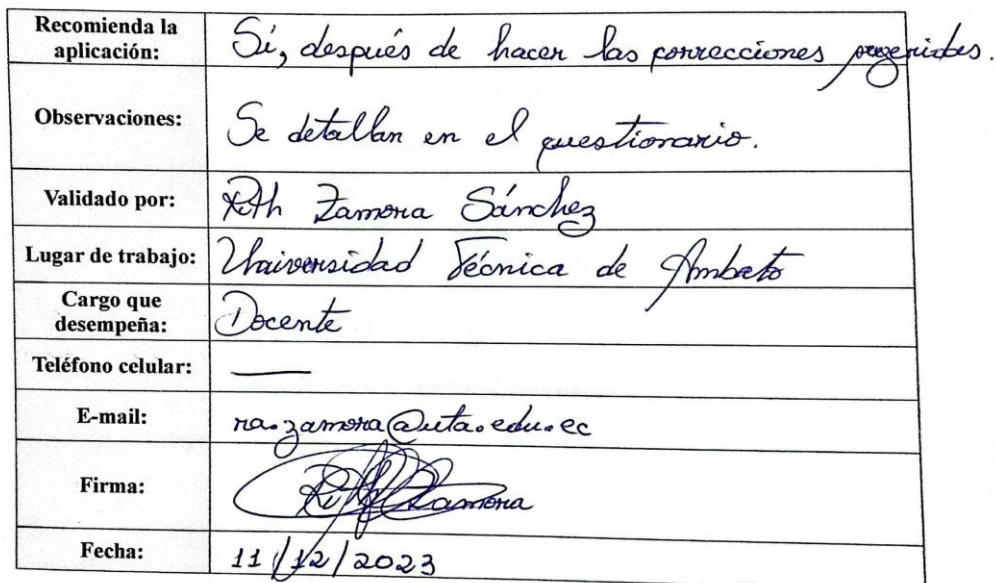 Recomienda la
aplicación:
Sí, después de hacer las correcciones sugeridas.
Observaciones:
Se detallan en el cuestionario.
Validado por:
Ruth Zamora Sánchez
Lugar de trabajo:
Universidad Técnica de Ambato
Cargo que
desempeña:
Docente
Teléfono celular:
—
E-mail:
ra.zamora@uta.edu.ec
Firma:
Ruth Zamora
Fecha:
11/12/2023